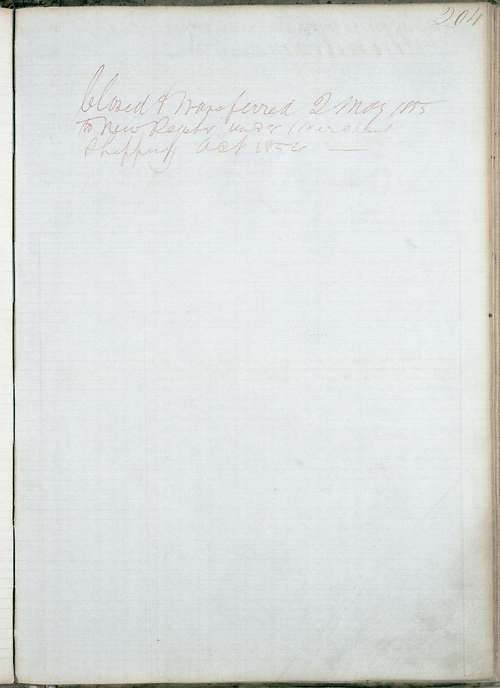 204
Closed & Transferred 2 May 1855
to New Register under Merchant
Shipping Act 1854 —